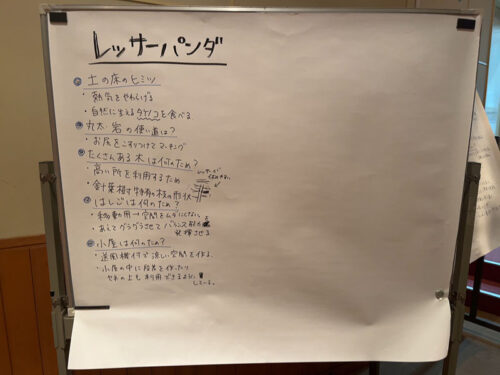 レッサーパンダ
土の床のヒミツ
・熱気をやわらげる
・自然に生えるタケノコを食べる
丸太・岩の使い道は?
・お尻をこすりつけてマーキング
たくさんある木は何のため?
・高い所を利用するため
・針葉樹特有の枝の形状
はしごは何のため?
・移動用→空間をムダにしない
・あえてグラグラさせてバランス形を
発揮させる
小屋は何のため?
・送風機付で涼しい空間を作る
・小屋の中に段差を作ったり
やねの上も利用できるように
している。